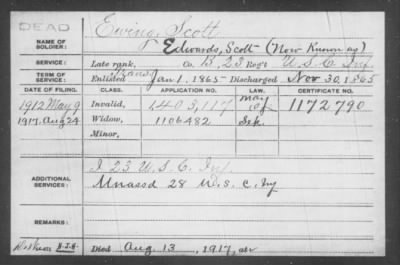 DEAD
Ewing, Scott
NAME OF SOLDIER:
Edwards, Scott (Now Known as)
SERVICE:
Late rank, Co. B, 23 Reg't U.S.C. Inf.
TERM OF SERVICE:
Transf
Enlisted Jan 1, 1865 Discharged Nov 30, 1865
DATE OF FILING. CLASS. APPLICATION NO. LAW. CERTIFICATE NO.
1912 May 9 Invalid, 1403,117 May 1172790
1917. Aug 24 Widow, 1106482
Minor,
ADDITIONAL SERVICES:
I 23 U.S.C. Inf.
Unassd 28 U.S.C. Inf
REMARKS:
Died Aug. 13, 1917, at